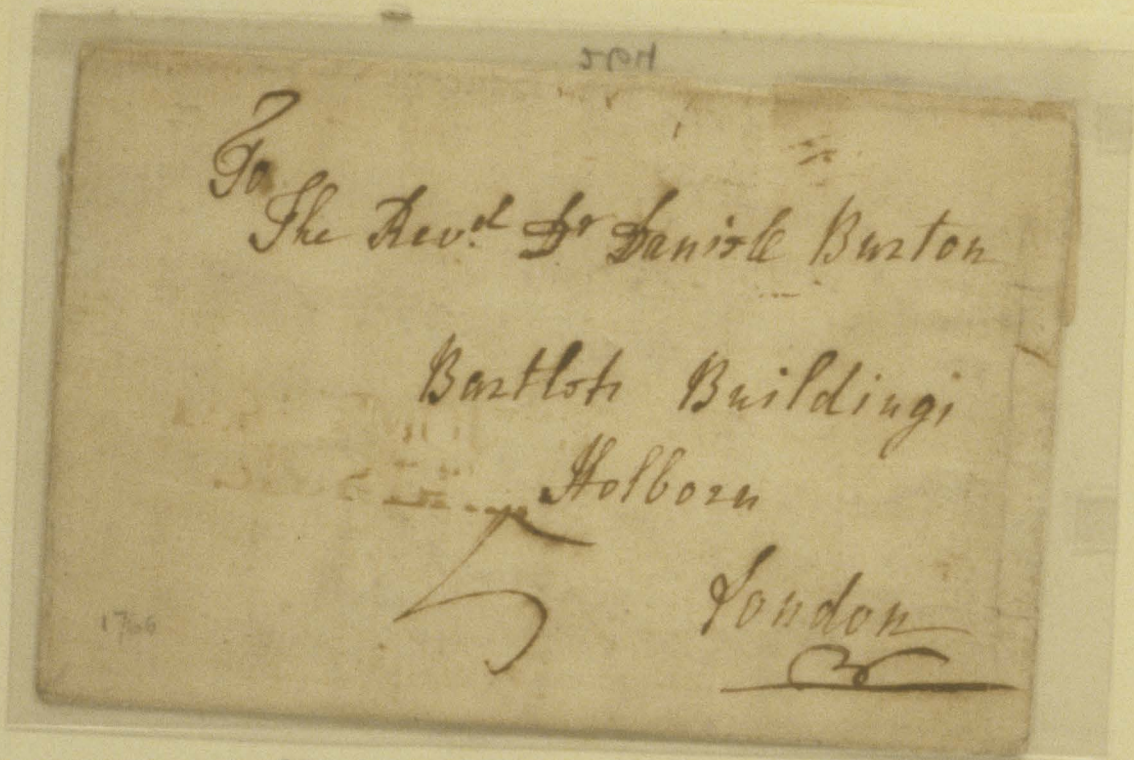 To
The Rev.d Dr Daniele Burton
Bartlots Buildings
Holborn
5
London
1766